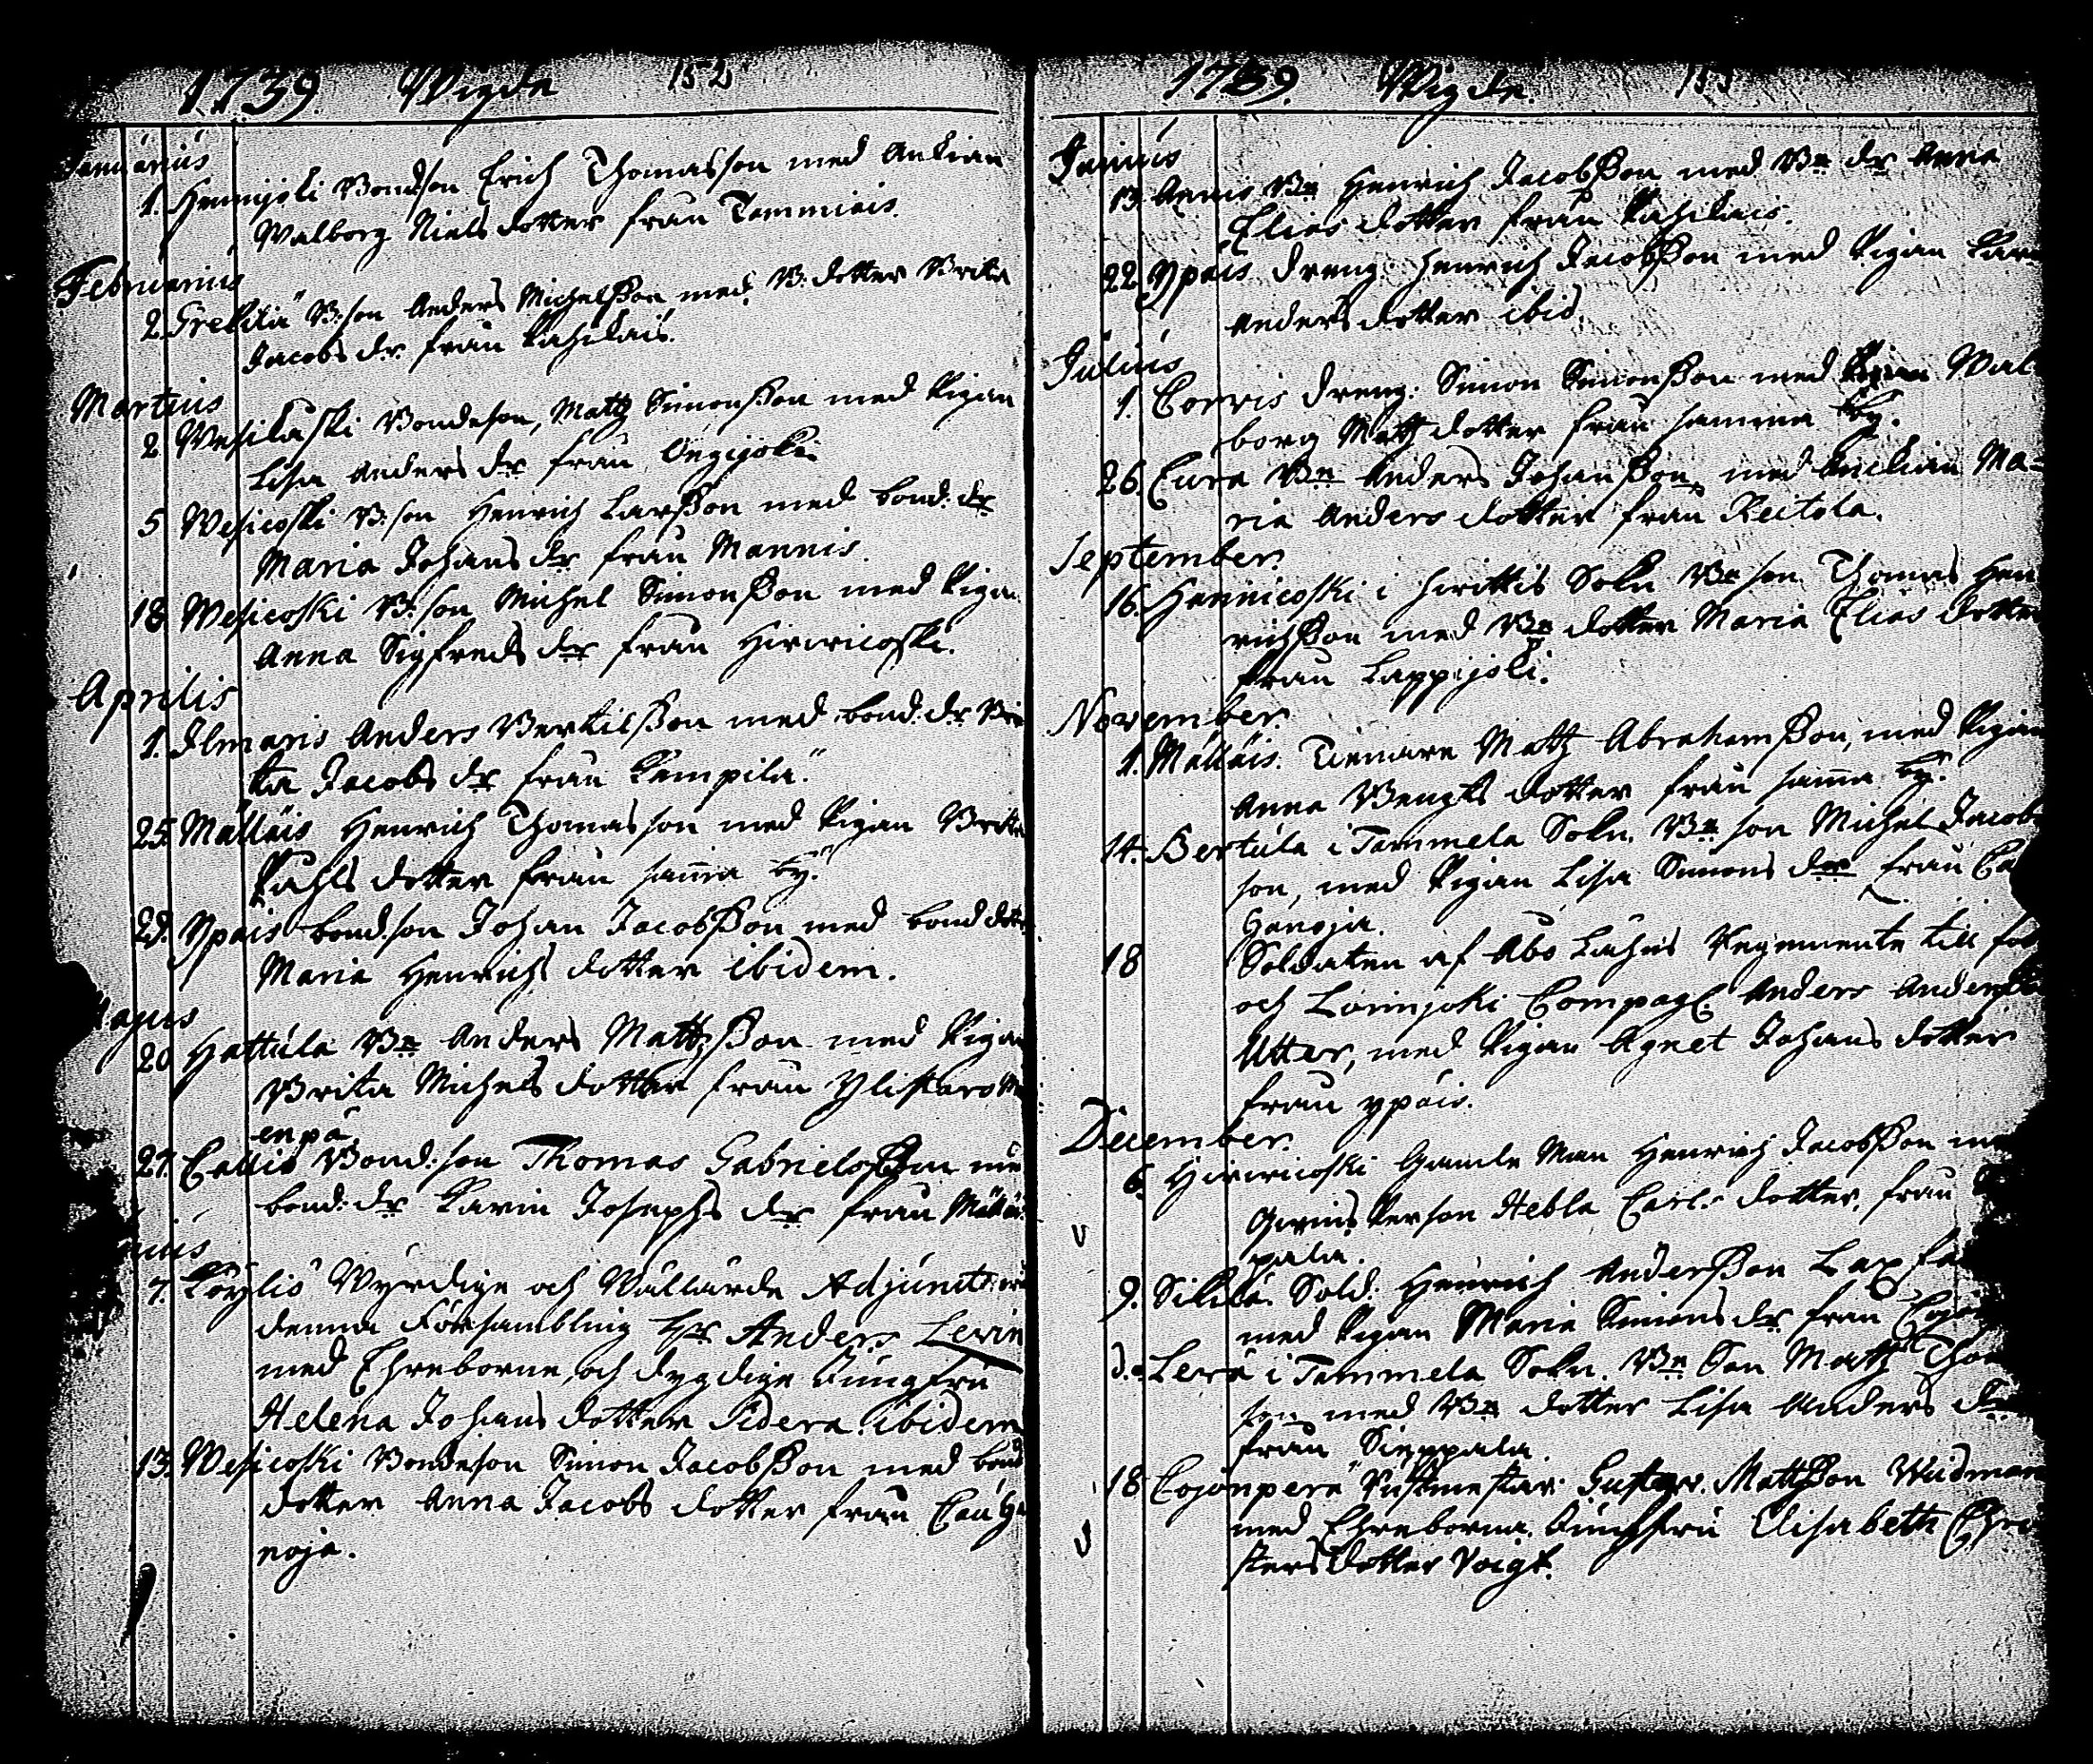 1739. Wigde 152
Januarius
1. Hennijoki Bondson Erich Thomasson med Ankian
Walborg Niels dotter från Tammiais.
Februarius
2. Grekilä B:son Anders Michelsson med B:dotter Brita
Jacobs dr från Raskkais.
Martius
2 Wesikåski Bondeson, Matts Simonsson med Pigan
Lisa Anders dr från Ongijoki.
5 Wesicoski B:son Henrich Larsson med bond: dr
Maria Johans dr från Mannis.
18 Wesicoski B:son Michel Simonsson med Pigan
Anna Sigfreds dr från Hirwicoski.
Aprilis
1. Ilmaris Anders Bertilsson med bond: dr Bri
ta Jacobs dr från Kempilä.
25. Mälläis Henrich Thomasson med Pigan Brita
Påhls dotter från samma by.
29. Ypäis bond:son Johan Jacobsson med bond dotter
Maria Henrichs dotter ibidem.
Majus
20 Hattula Bn Anders Mattsson med Pigan
Brita Michels dotter från Ylistaro
enpä.
27. Callio Bond:son Thomas Gabrielsson me
bond: dr Karin Josephs dr från Mälläis
Junius
7. Köylis Wyrdige och Wällärde Adjuncten wid
denna Försambling Hr Anders Levin
med Ehreborne och dygdige Jungfru
Helena Johans dotter Sidera ibidem
13. Wesicoski Bondeson Simon Jacobsson med bond
dotter Anna Jacobs dotter från Cauha
noja.
1739. Wigde. 153
Junius
13. Bn Henrich Jacobsson med Bn dr Anna
Elias dotter från Raskkais.
22. Ypäis dreng: Henrich Jacobsson med Pigan Karin
Anders dotter ibid.
Julius
1. Torris dreng: Simon Simonsson med Pigan Wal
borg Matts dotter från samma by.
26. Cura Bn Anders Johansson, med Enckian Ma-
ria Anders dotter från Keitola.
September
16. Hennicoski i Hvittis Sokn Bn son Thomas Hen
richsson med Bn dotter Maria Elias dotter
från Lappijoki.
November
1. Mälläis. Tienare Matts Abrahamsson, med Pigan
Anna Bengts dotter från samma by.
14. Bertula i Tammela Sokn. Bn son Michel Jacobs
son, med Pigan Lisa Simons dr från Ca
hanoja.
18 Soldaten af Åbo Lähns Regemente till fot
och Loimjoki Compagn: Anders Andersson
Utter, med Pigan Agnet Johans dotter
från ypäis.
December
6. Hirwicoski Gamle Man Henrich Jacobsson med
Qwins Person Hebla Carls dotter, från
pala.
9. Sikilä. Sold: Henrich Andersson Lax
med Pigan Maria Simons dr från
d.o Lerä i Tammela Sokn. Bn Son Matts Thom
son med Bn dotter Lisa Anders dr
från Sieppala
18 Cojonperä Rustmestar Gustav Mattsson Widman
med Ehreborna Jungfru Elisabeth Chri
sters dotter Voigt.